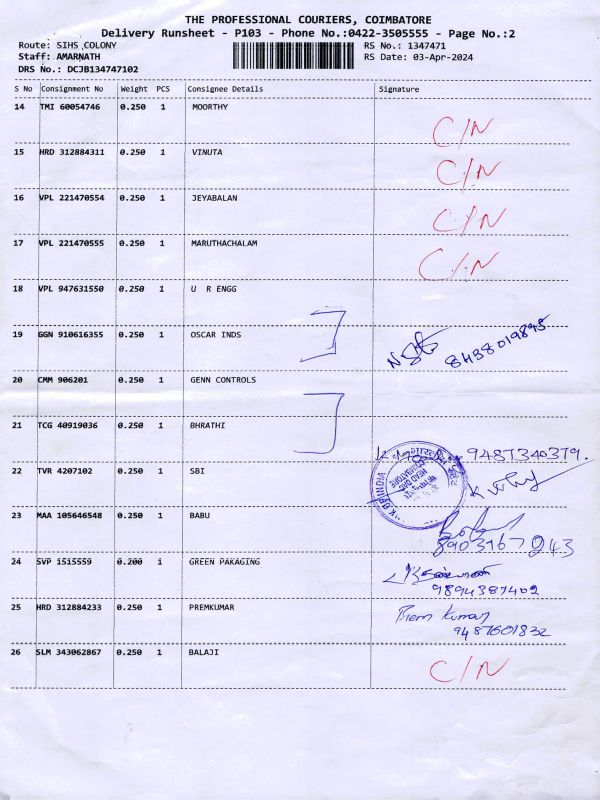 THE PROFESSIONAL COURIERS, COIMBATORE
Delivery Runsheet - P103 - Phone No.:0422-3505555 - Page No.:2
Route: SIHS COLONY RS No.: 1347471
Staff: AMARNATH RS Date: 03-Apr-2024
DRS No.: DCJB134747102
S No Consignment No Weight PCS Consignee Details Signature
14 TMI 60054746 0.250 1 MOORTHY C/N
15 HRD 312884311 0.250 1 VINUTA C/N
16 VPL 221470554 0.250 1 JEYABALAN C/N
17 VPL 221470555 0.250 1 MARUTHACHALAM C/N
18 VPL 947631550 0.250 1 U R ENGG
19 GGN 910616355 0.250 1 OSCAR INDS 8438019895
20 CMM 906201 0.250 1 GENN CONTROLS
21 TCG 40919036 0.250 1 BHRATHI
22 TVR 4207102 0.250 1 SBI 9487340379.
23 MAA 105646548 0.250 1 BABU 8903167243
24 SVP 1515559 0.200 1 GREEN PAKAGING 9894387402
25 HRD 312884233 0.250 1 PREMKUMAR Prem Kumar 9487601832
26 SLM 343062867 0.250 1 BALAJI C/N